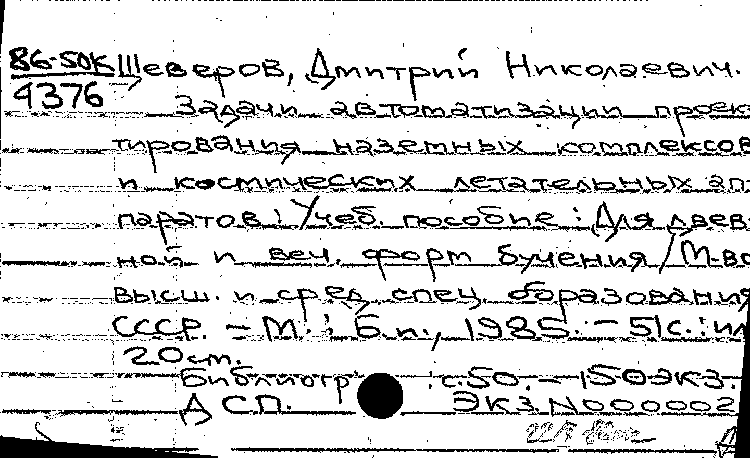 86-50К Шеверов, Дмитрий Николаевич.
4376
Задачи автоматизации проек
тирования наземных комплексов
и космических летательных ап
паратов: Учеб. пособие: Для днев-
ной и веч. форм бучения / М-во
высш. и сред. спец. образования
СССР. - М.: Б.и., 1985. - 51с.: ил
20 см.
Библиогр : с.50. - 150 экз.
ДСП. Экз. N000002